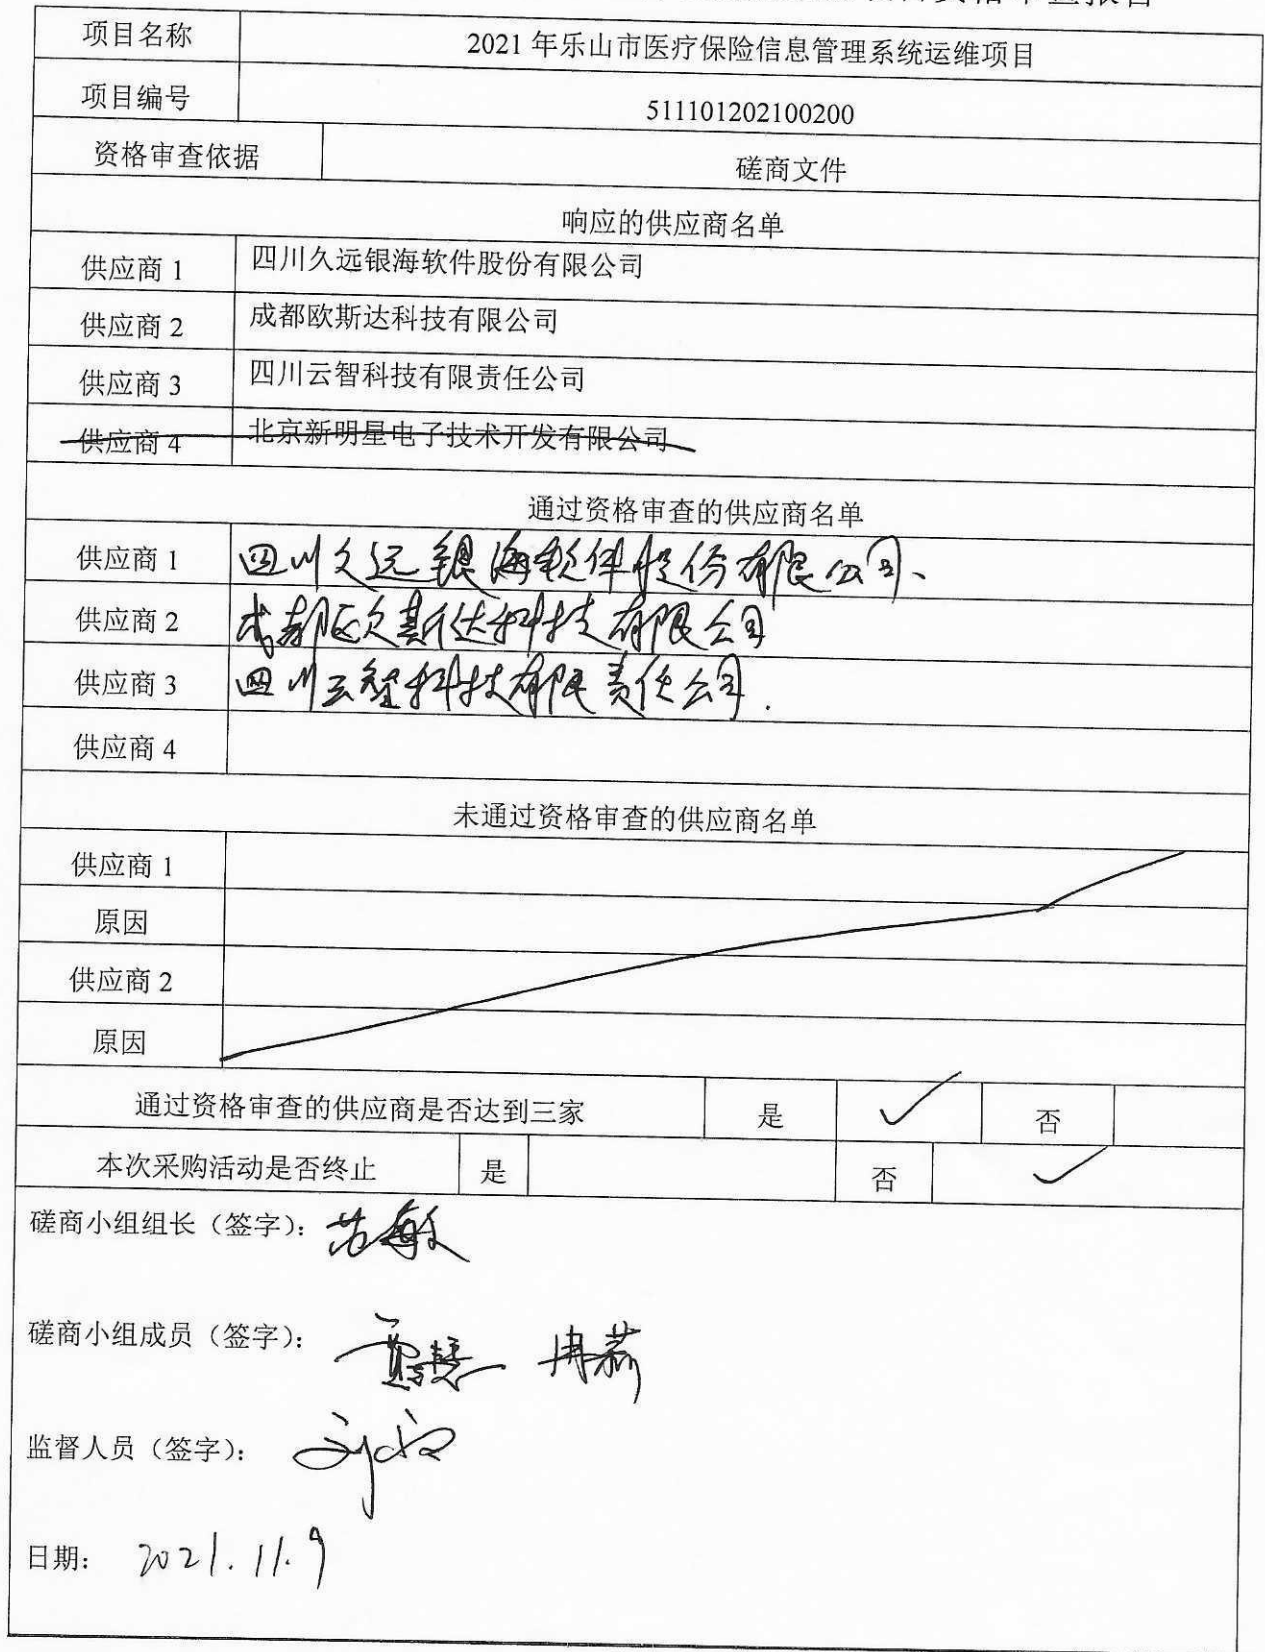 资格审查报告
项目名称 2021年乐山市医疗保险信息管理系统运维项目
项目编号 511101202100200
资格审查依据 磋商文件
响应的供应商名单
供应商1 四川久远银海软件股份有限公司
供应商2 成都欧斯达科技有限公司
供应商3 四川云智科技有限责任公司
供应商4 北京新明星电子技术开发有限公司
通过资格审查的供应商名单
供应商1 四川久远银海软件股份有限公司、
供应商2 成都欧斯达科技有限公司
供应商3 四川云智科技有限责任公司.
供应商4
未通过资格审查的供应商名单
供应商1
原因
供应商2
原因
通过资格审查的供应商是否达到三家 是 ✓ 否
本次采购活动是否终止 是 否 ✓
磋商小组组长（签字）：
磋商小组成员（签字）： 冉燕
监督人员（签字）：
日期： 2021.11.9